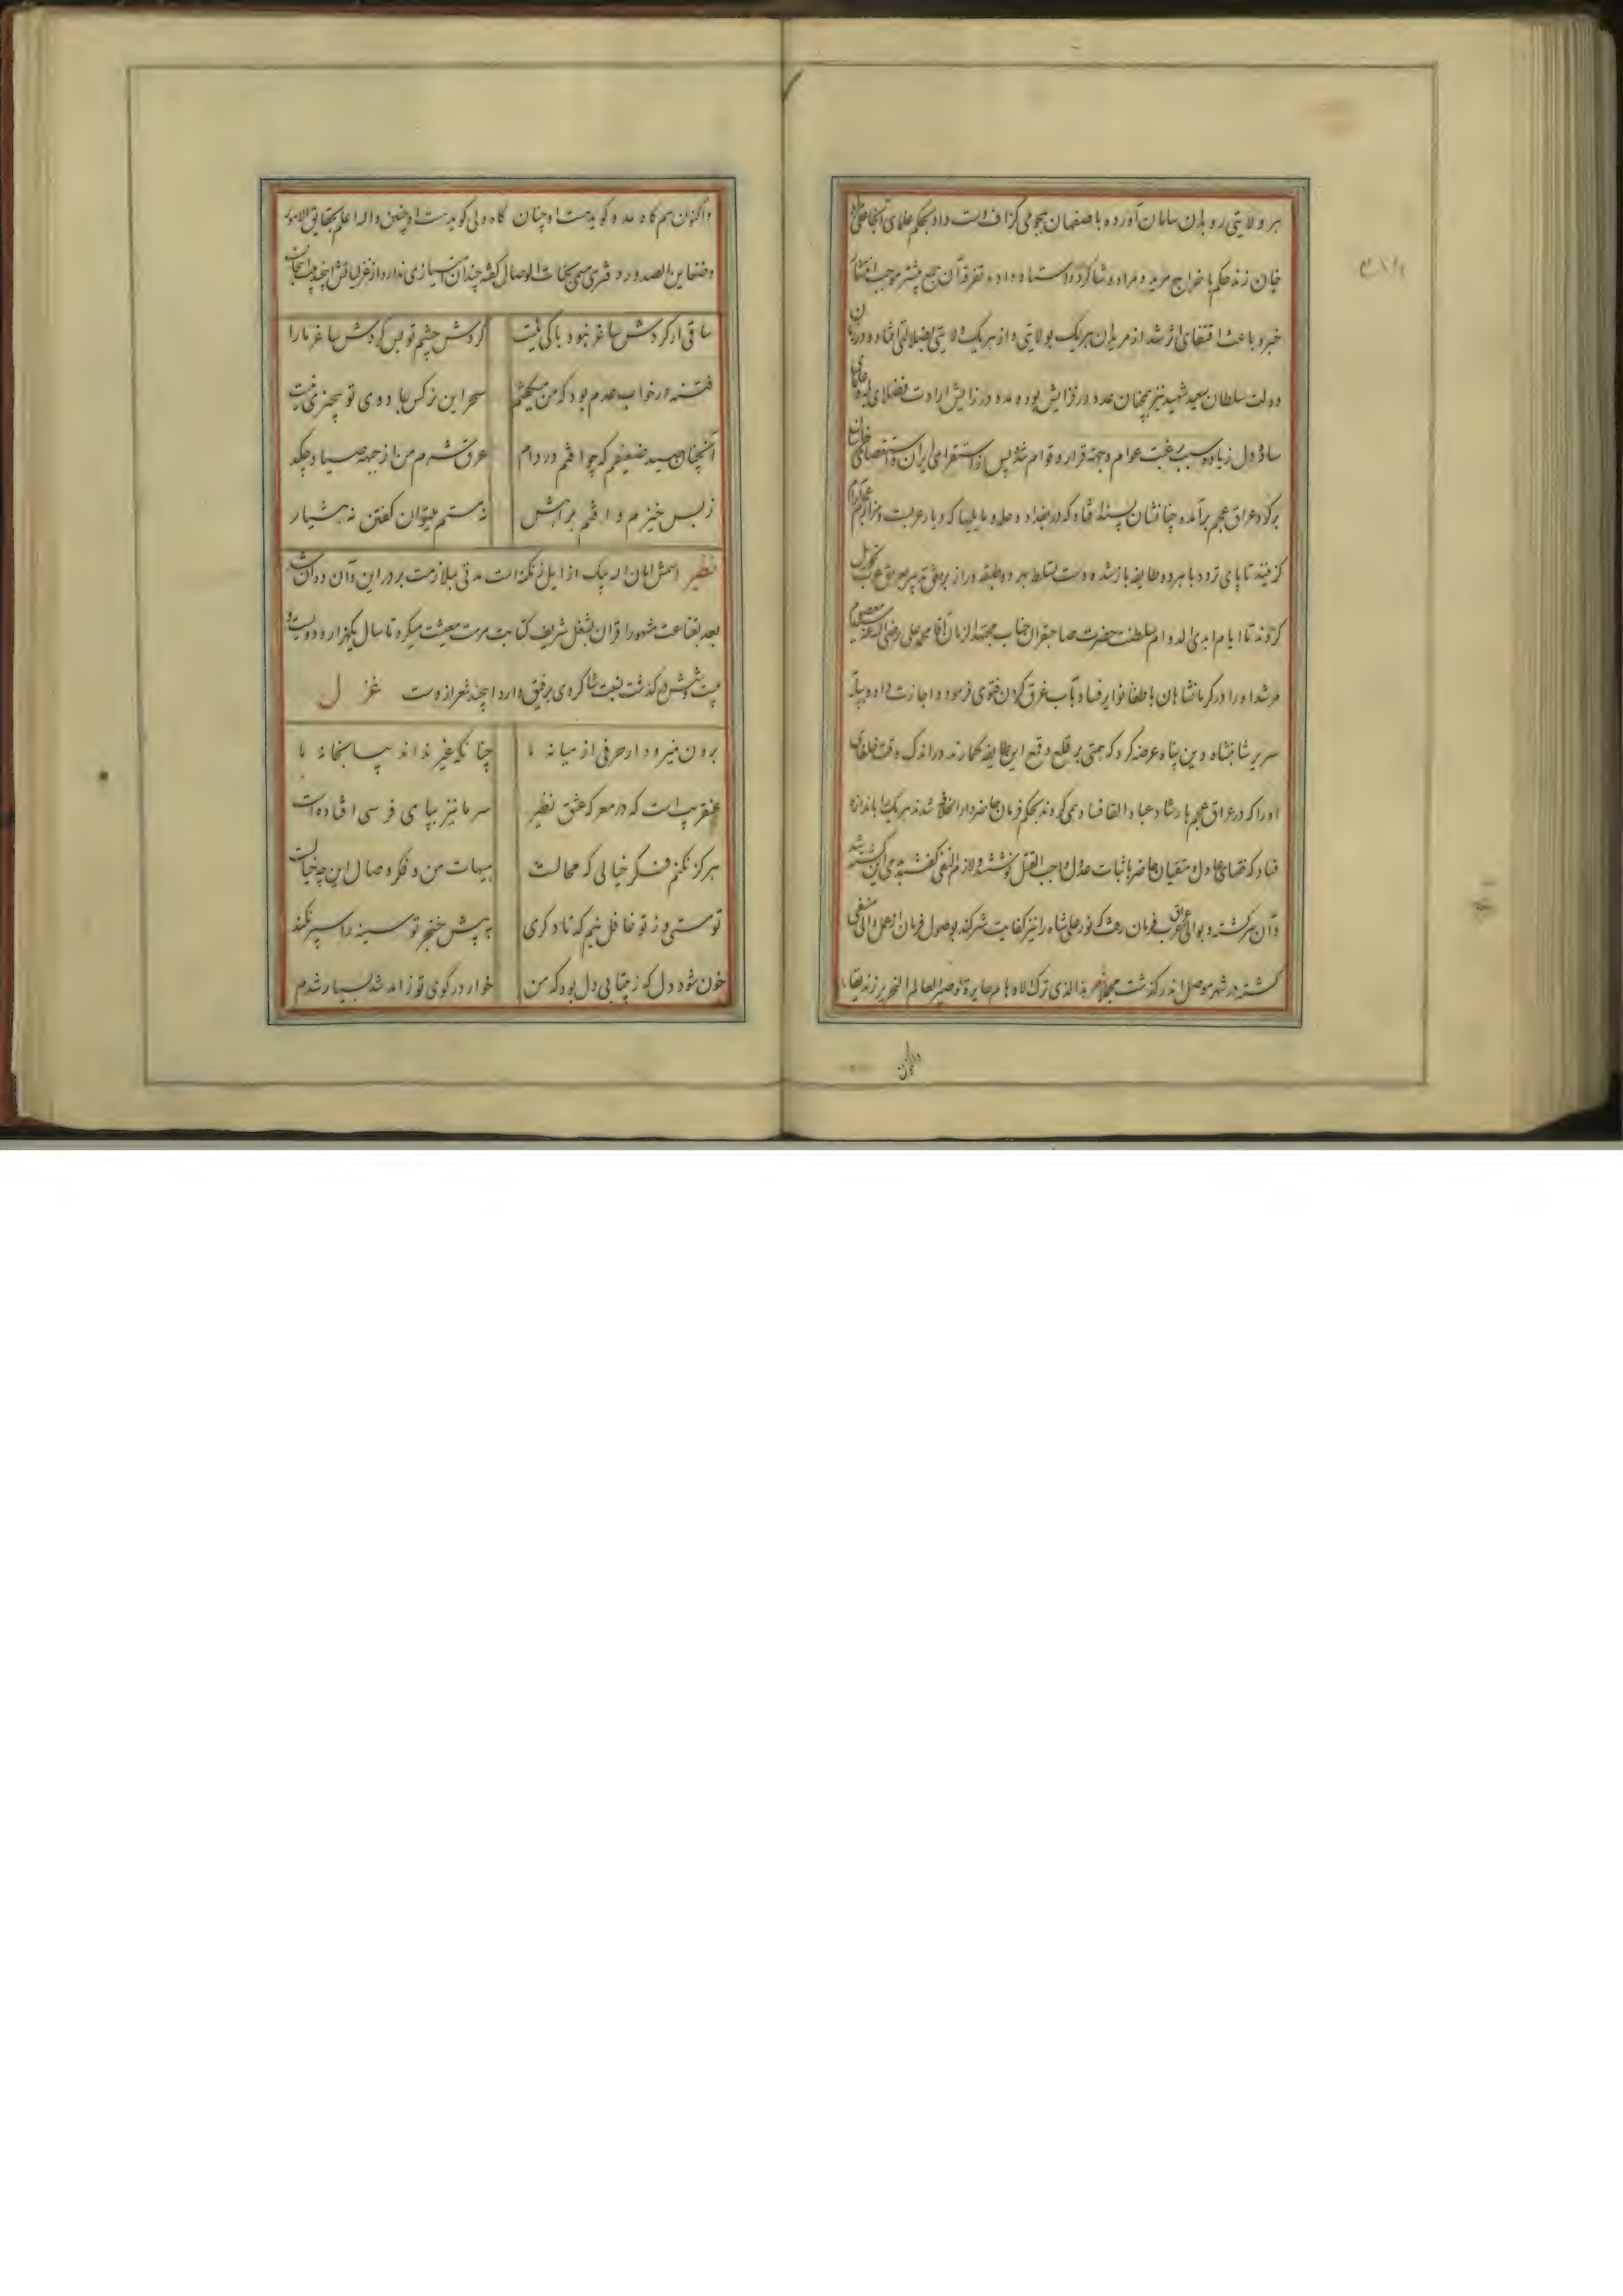 هر ولایتی رو بدان سامان آورده باصفهان هجومی گزاف دست داد بحکم علمای آنجا علی مراد
خان زند حکم باخراج مرید و مراد و شاگرد و استاد داده تفرق آن جمع بیشتر موجب انتشار
خبر و باعث اقتفای اثر شد از مریدان هر یک بولایتی و از هر یک ولایتی بضلالتی افتاده در زمان
دولت سلطان سعید شهید نیز همچنان عدد در فزایش بوده مدد در زایش ارادت فضلای
ساده دل زیاده سبب رغبت عوام و جهة قرار و قوام شد پس از استقرای ایران و استقصای
برگرد عراق عجم برآمده چنانشان پسند افتاد که در بغداد و حله و مایلیها که دیار عربست
گزینند تا پای تردد با هر دو طایفه باز شد و دست تسلط بهر دو طبقه دراز عراق عرب تحویل
کردند تا ایام ابدی الدوام سلطنت حضرت صاحبقران جناب مجتهد الزمان آقا محمد علی رضی الله عنه
مرشد او را در کرمانشاهان باطفا نوایر فساد بآب غرق کردن فتوی فرمود و اجازت داد و بپایه
سریر شاهنشاه دین پناه عرضه کرد که همتی بر قلع و قمع این طایفه گمارند در اندک وقت خلفای
او را که در عراق عجم بارشاد عباد و القا فساد همی کردند بحکم فرمان حاضر دار الخلافه شدند هر یک باندازه
فساد که قضات عادل و متقیان حاضر باثبات عدول واجب القتل نوشتند و لازم النفی گفتند این کشته شد
و آن سرگشته و بوالی عراق عرب فرمان رفت که نور علی شاه را نیز کفایت شر کند بوصول فرمان از عمل والی منفی
گشته در شهر موصل اندر گذشت هذا الذی ترک الاوهام حایرة و صیر العالم النحریر زندیقا
و اکنون
و اکنون هم گاه عدو گویدست او چنان گاه ولی گویدست او چنین والله اعلم بحقایق الامور
و ضغاین الصدور و مثنوی مسمی بجنات الوصال گفته چندان امتیازی ندارد از غزلیاتش این چند بیت
ساقی ار گردش ساغر نبود باکی نیست گردش چشم تو بس گردش ساغر ما را
فتنه در خواب عدم بود که من میگفتم سحر این نرگس جادوی تو بیچیزی نیست
آنچنان صید ضعیفم که چو افتم در دام عرق شرم من از جبهه صیاد چکد
ز بس خیزم و افتم براهش نه مستم میتوان گفتن نه هشیار
نظیر اسمش امان الله بیک از ایل زنگنه است مدتی بملازمت بر در این و آن دوان
بعد بقناعت مشهور قران بشغل شریف کتابت مرمت معیشت میکرد تا سال یکهزار و دویست و
بیست و شش در گذشت نسبت شاگردی برفیق دارد این چند شعر از وست غزل
برون نمیرود ار حرفی از میانه ما چنانکه غیر نداند پیامخانه ما
عنقریب است که در معرکه عشق نظیر سر ما نیز بپای فرسی افتاده است
هرگز نکنم فکر خیالی که محالست هیهات من و فکر وصال این چه خیالست
تو مستی و ز تو غافل نیم که تا دگری به پیش خنجر تو سینه را سپر نکند
خون شود دل که ز بیتابی دل بود که من خوار در کوی تو ز آمد شد بسیار شدم